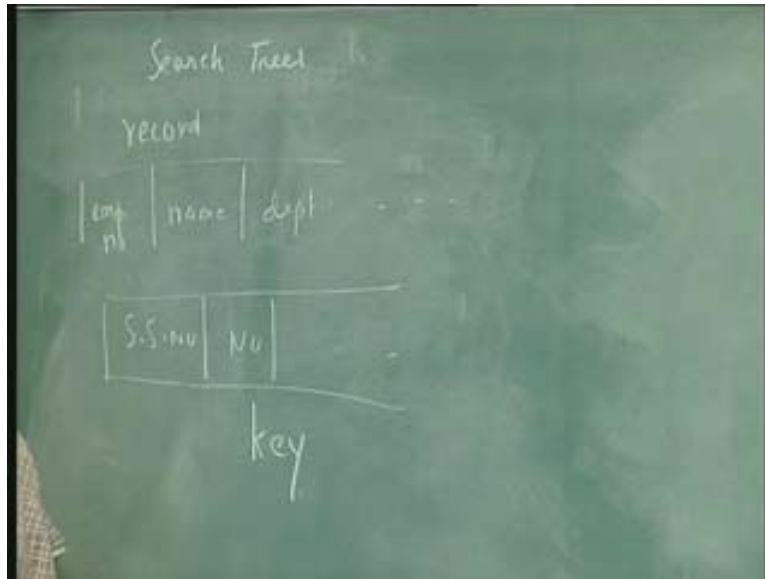 Search Trees
record
emp name dept - - -
no
S.S.NO NO -
key